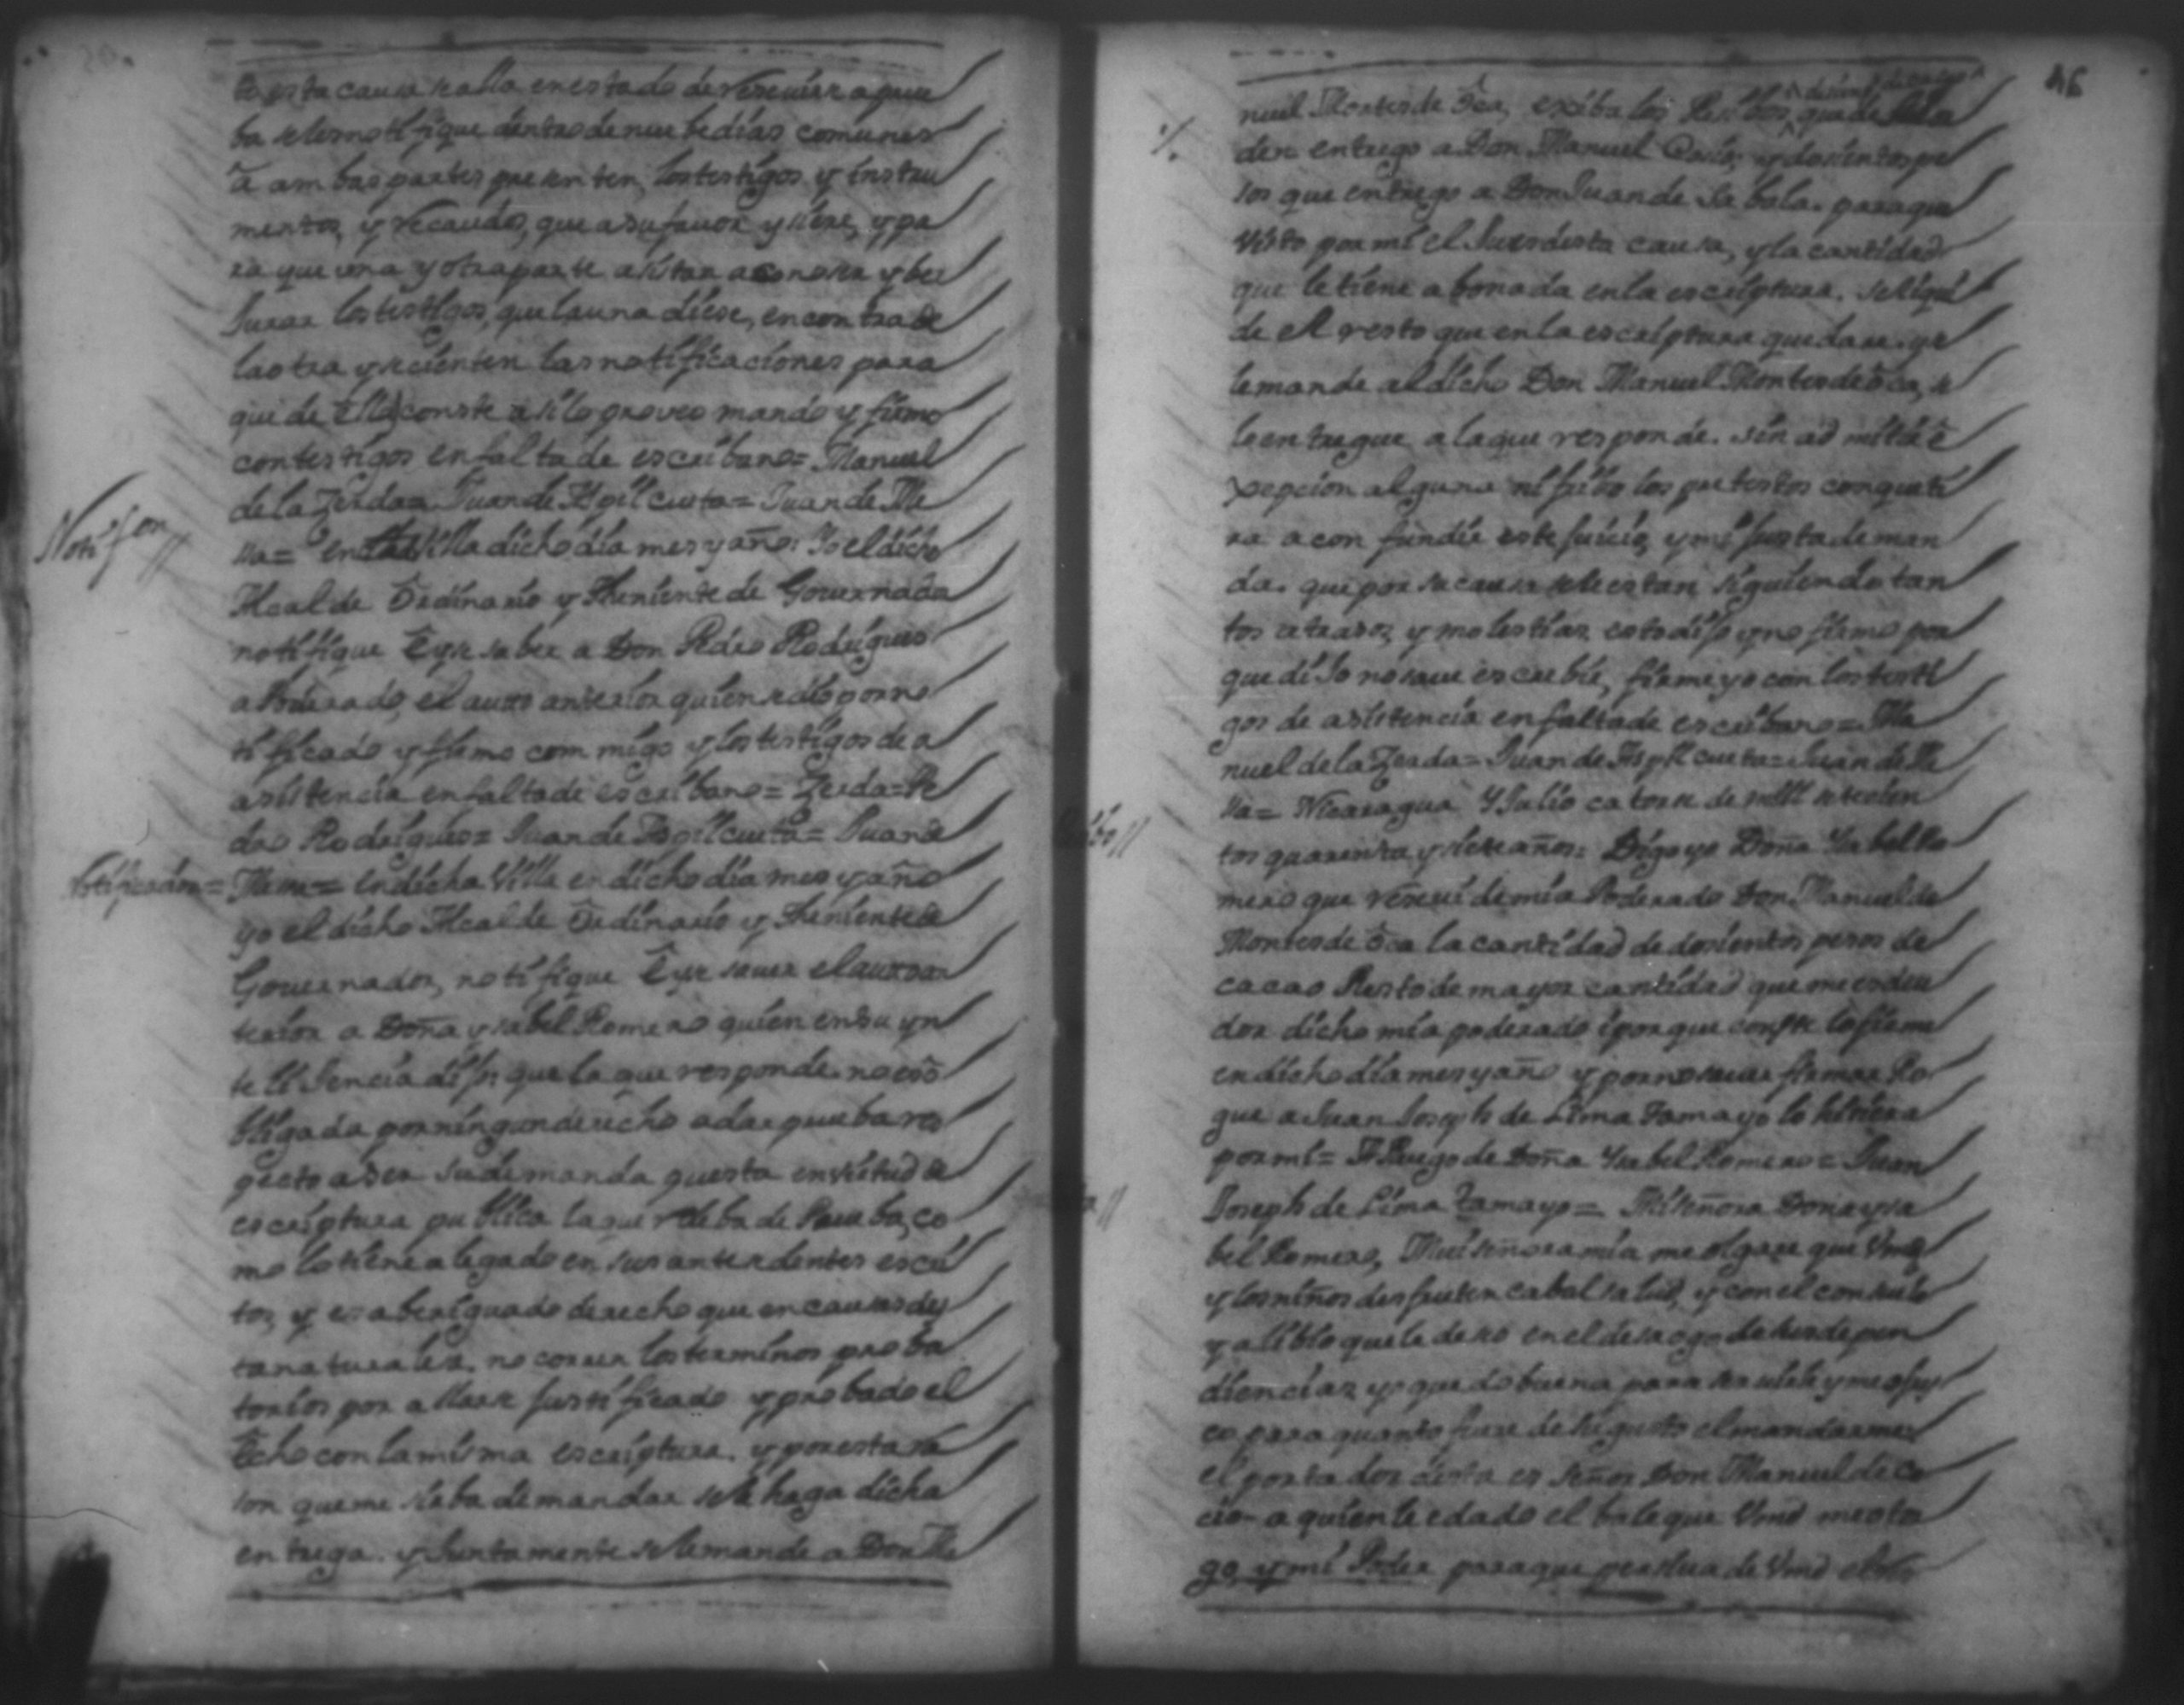 to esta causa se alla en estado de rreseuir aprue
ba se les notifique dentro de nuebe dias comunes
â ambas partes presenten, los testigos y instru
mentos, y recaudos, que a su fauor ysiere, y pa
ra que una y otra parte asistan a conoser y ber
Jurar los testigos, que la una diese, en contra de
la otra y se cienten las notificaciones para
que de ello conste asi lo proveo mando y firmo
con testigos en falta de escribano= Manuel
de la Zerda= Juan de Aspillcueta= Juan de Me
na= en esta Villa dicho dia mes y año: Yo el dicho
Notifon //
Alcalde Ôrdinario y Theniente de Gouernador
notifique Ê yse saber a Don Pedro Rodrigues
apoderado, el auto anterior quien se dio por no
tificado y firmo commigo y los testigos de a
asistencia en falta de escribano= Zerda= Pe
dro Rodrigues= Juan de Aspillcueta= Juan de
Notificasion= Mena= en dicha Villa en dicho dia mes y año
yo el dicho Alcalde Ôrdinario y Theniente de
Gouernador, notifique Ê yse sauer el auto an
terior a Doña ysabel Romero quien en su yn
teliJencia dijo, que la que responde, no es ô
bligada por ningun derecho a dar prueba res
pecto a ser su demanda puesta en virtud de
escriptura publica la que rreleba de Prueba, co
mo lo tiene alegado en sus antesedentes escri
tos, y es aberiguado derecho que en causas des
ta naturalesa, no corren los terminos proba
torios por allarse justificado y probado el
Êcho con la misma escriptura. y por esta ra
son que me sirba de mandar se le haga dicha
entrega. y Juntamente se le mande a Don Ma
46
nuel Montes de Ôca, exiba los Resibos, que de
den entrego a Don Manuel y dosientos pe
sos que entrego a Don Juan de Sabala. para que
Visto por mi el Jues desta causa, y la cantidad
que le tiene abonada en la escriptura. se liqui
de el resto que en la escriptura quedare. y se
le mande al dicho Don Manuel Montes de ôca, se
lo entregue a la que responde. sin admitir ê
xepcion alguna ni fribolos pretestos con que ti
ra a confundir este juicio, y mi justa deman
da. que por su causa se le estan siguiendo tan
tos atrasos, y molestias esto dijo y no firmo por
que diJo no saue escrebir, firme yo con los testi
gos de asistencia en falta de escribano= Ma
nuel de la Zerda= Juan de Aspillcueta= Juan de Me
na= Nicaragua Y Julio catorse de mill setesien
tos quarenta y siete años: Digo yo Doña Ysabel Ro
mero que reseui de mi apoderado Don Manuel de
Montes de ôca la cantidad de dosientos pesos de
cacao Resto de mayor cantidad que me es deu
dor dicho mi apoderado i porque conste lo firme
en dicho dia mes y año y por no sauer firmar Ro
gue a Juan Joseph de Lima Tamayo lo hisiera
por mi= A Ruego de Doña Ysabel Romero= Juan
Joseph de Lima Tamayo= Mi señora Doña ysa
bel Romero, Mui señora mia me olgare que Vmd
y los niños desfruten cabal salud, y con el consuelo
y alibio que le deseo en el desaogo de sus depen
diencias yo quedo buena para seruirle y me ofres
co para quanto fuere de su gusto el mandarme,
el portador desta es señor Don Manuel de Co
cio- a quien le e dado el bale que Vmd me oto
go, y mi Poder para que persiua de Vmd